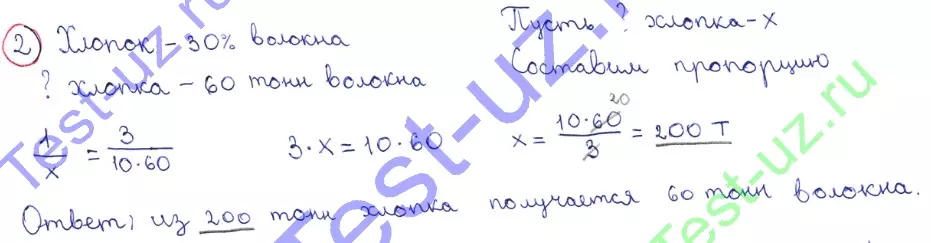 ② Хлопок – 30% волокна
Пусть ? хлопка – x
? хлопка – 60 тонн волокна
Составим пропорцию
1/x = 3/10·60   3·x = 10·60   x = 10·60/3 = 200 т
20
Ответ: из 200 тонн хлопка получается 60 тонн волокна.
Test-uz.ru
Test-uz.ru
Test-uz.ru